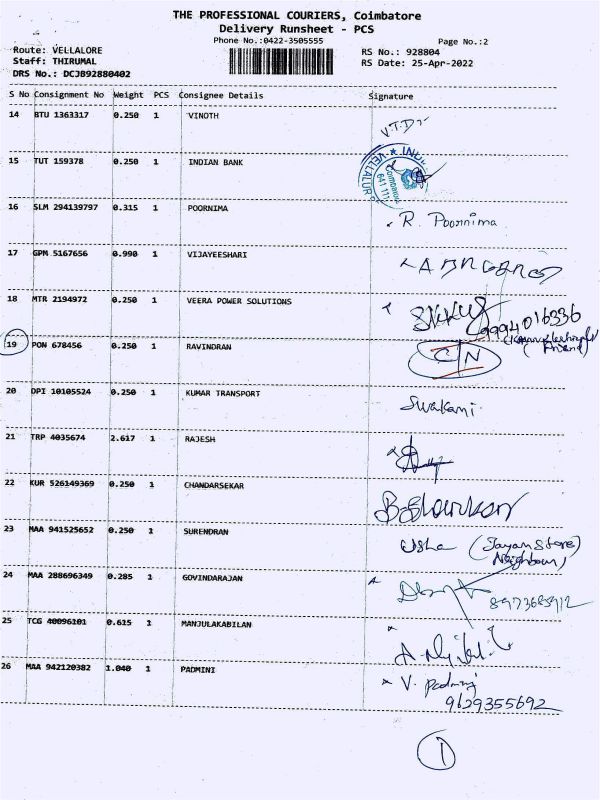 THE PROFESSIONAL COURIERS, Coimbatore
Delivery Runsheet - PCS
Phone No.:0422-3505555
Page No.:2
Route: VELLALORE
RS No.: 928804
Staff: THIRUMAL
RS Date: 25-Apr-2022
DRS No.: DCJB92880402
S No Consignment No Weight PCS Consignee Details Signature
14 BTU 1363317 0.250 1 VINOTH
15 TUT 159378 0.250 1 INDIAN BANK
VELLALUR ★ INDI
Coimbatore
641 111
16 SLM 294139797 0.315 1 POORNIMA R. Poornima
17 GPM 5167656 0.990 1 VIJAYEESHARI
18 MTR 2194972 0.250 1 VEERA POWER SOLUTIONS
9994016336
19 PON 678456 0.250 1 RAVINDRAN C/N
20 DPI 10105524 0.250 1 KUMAR TRANSPORT
21 TRP 4035674 2.617 1 RAJESH
22 KUR 526149369 0.250 1 CHANDARSEKAR
23 MAA 941525652 0.250 1 SURENDRAN Usha (Jayam Store)
Neighbour)
24 MAA 288696349 0.285 1 GOVINDARAJAN
25 TCG 40096101 0.615 1 MANJULAKABILAN
26 MAA 942120382 1.040 1 PADMINI V. Padmini
9629355692
1